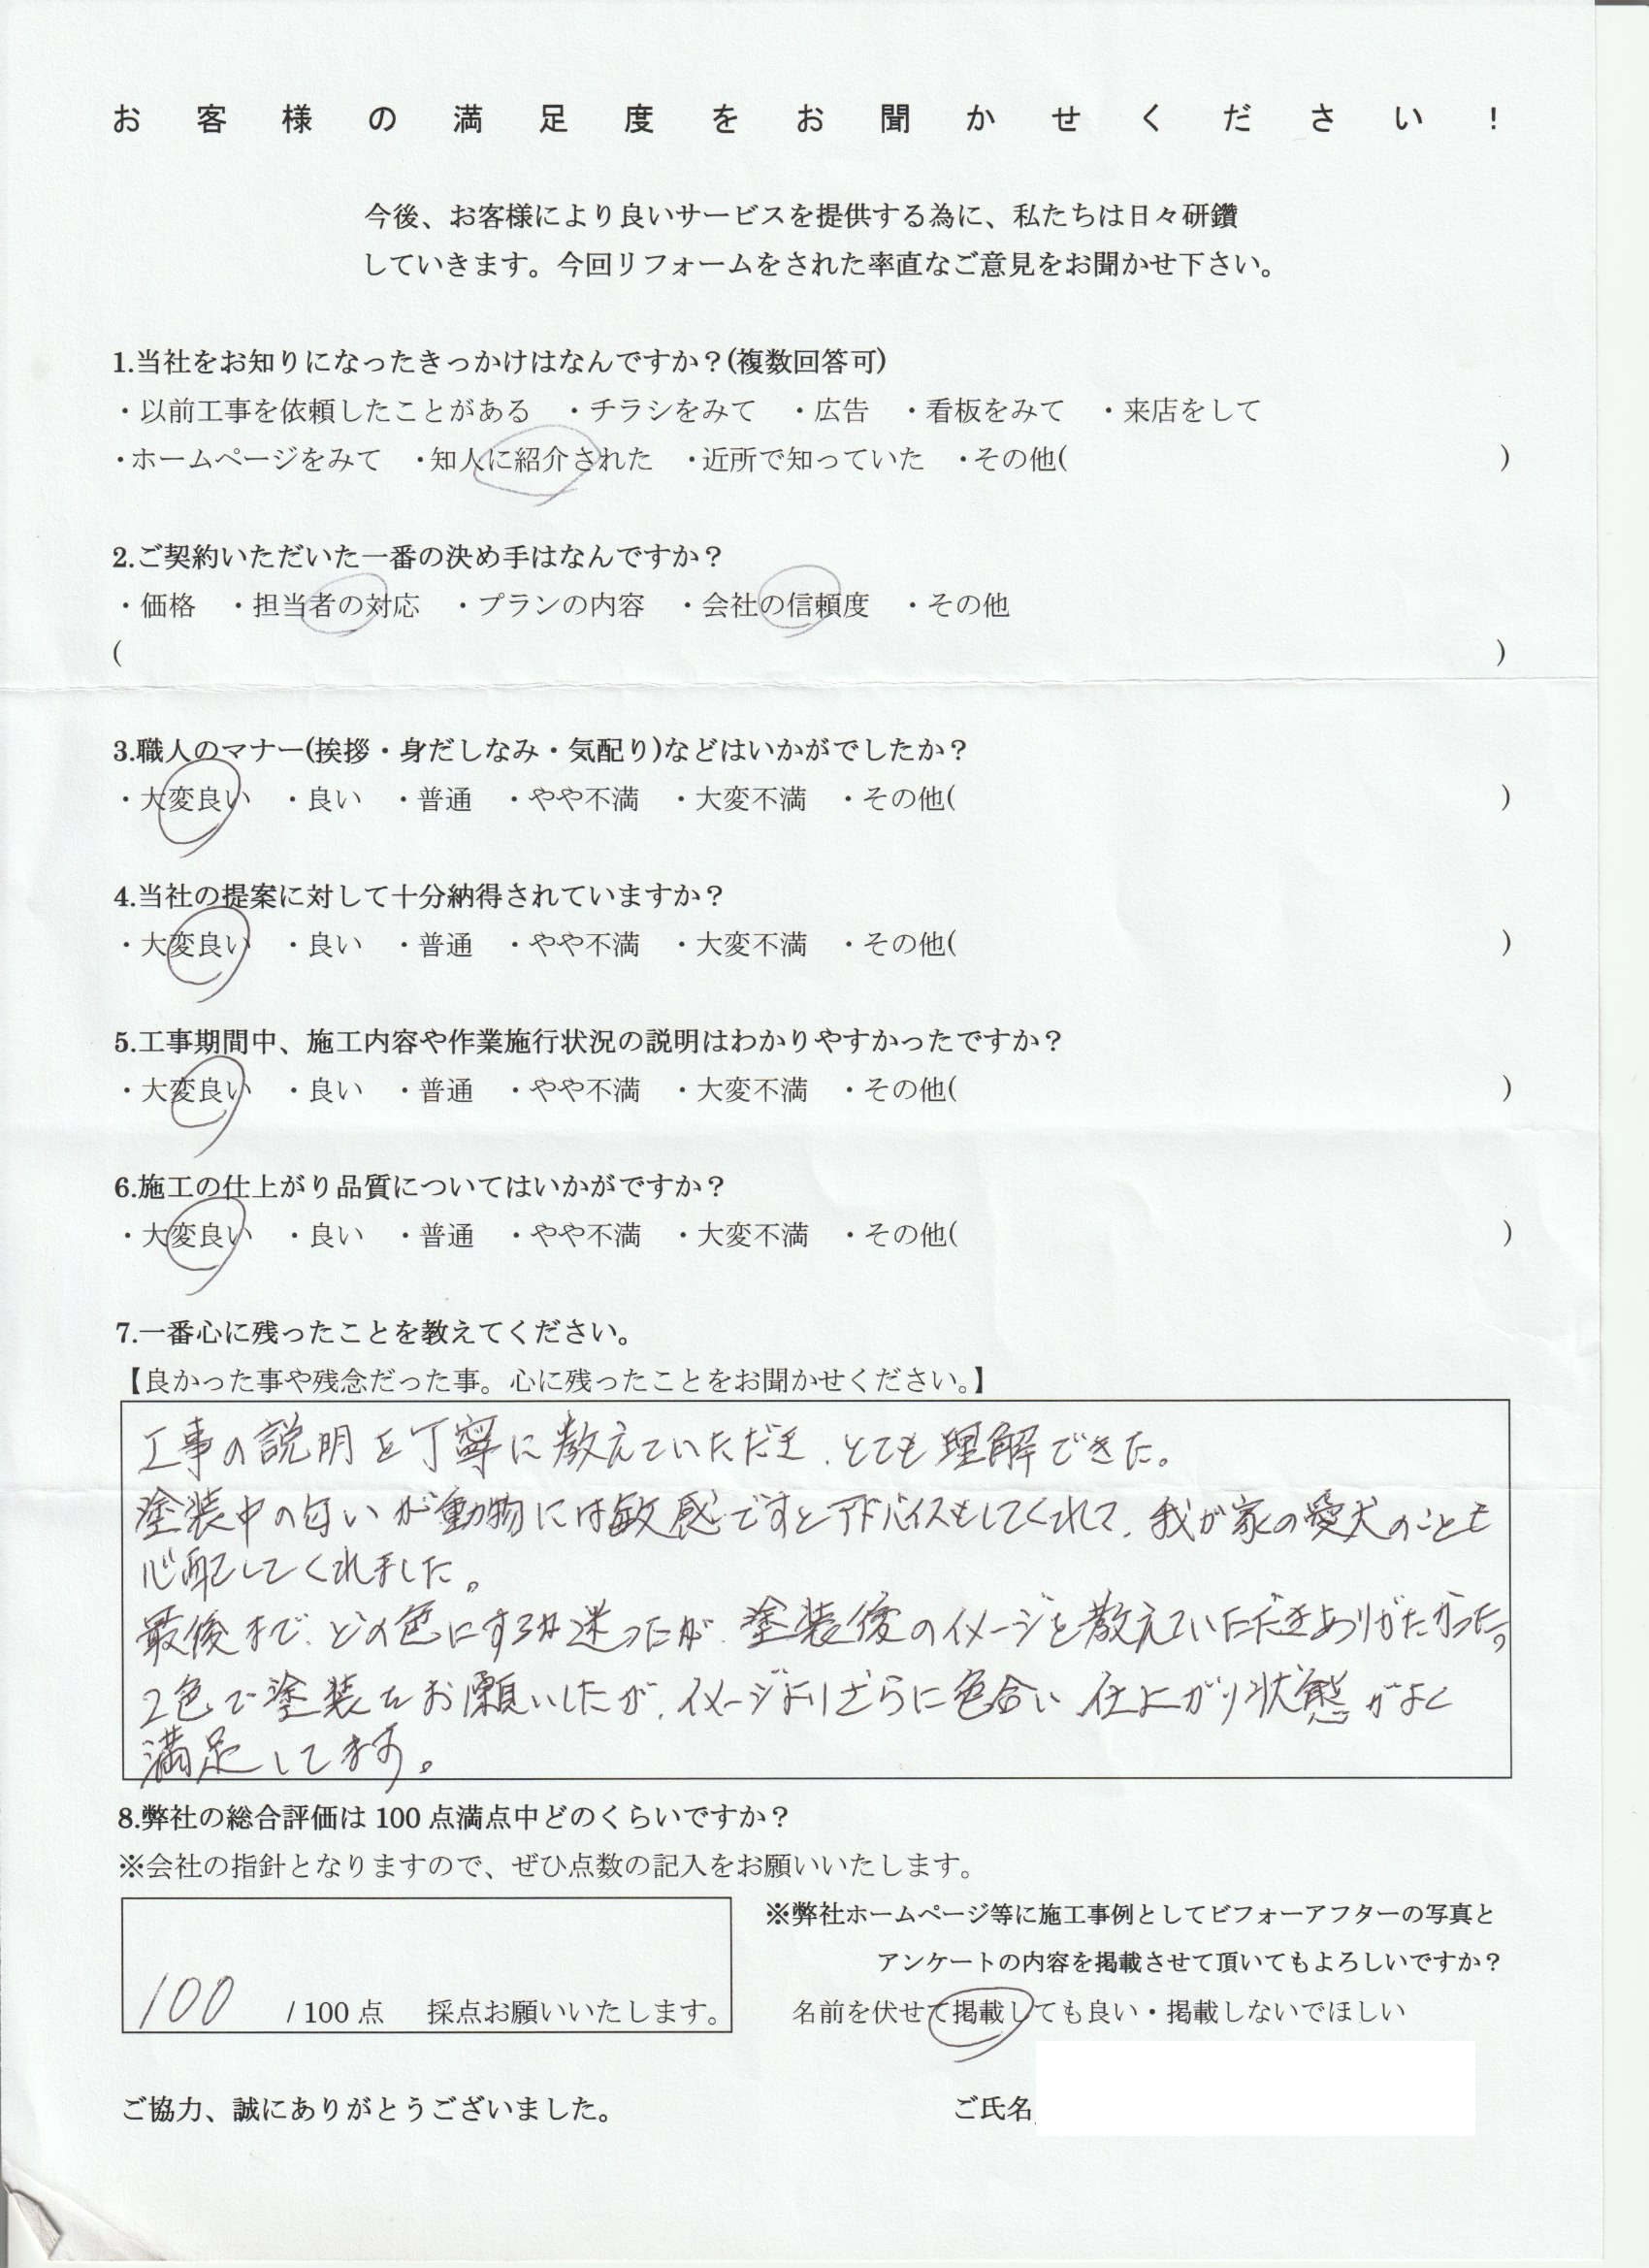 お客様の満足度をお聞かせください！
今後、お客様により良いサービスを提供する為に、私たちは日々研鑽
していきます。今回リフォームをされた率直なご意見をお聞かせ下さい。
1.当社をお知りになったきっかけはなんですか？(複数回答可)
・以前工事を依頼したことがある ・チラシをみて ・広告 ・看板をみて ・来店をして
・ホームページをみて ・知人に紹介された ・近所で知っていた ・その他( )
2.ご契約いただいた一番の決め手はなんですか？
・価格 ・担当者の対応 ・プランの内容 ・会社の信頼度 ・その他
( )
3.職人のマナー(挨拶・身だしなみ・気配り)などはいかがでしたか？
・大変良い ・良い ・普通 ・やや不満 ・大変不満 ・その他( )
4.当社の提案に対して十分納得されていますか？
・大変良い ・良い ・普通 ・やや不満 ・大変不満 ・その他( )
5.工事期間中、施工内容や作業施行状況の説明はわかりやすかったですか？
・大変良い ・良い ・普通 ・やや不満 ・大変不満 ・その他( )
6.施工の仕上がり品質についてはいかがですか？
・大変良い ・良い ・普通 ・やや不満 ・大変不満 ・その他( )
7.一番心に残ったことを教えてください。
【良かった事や残念だった事。心に残ったことをお聞かせください。】
工事の説明を丁寧に教えていただき、とても理解できた。
塗装中の匂いが動物には敏感ですとアドバイスもしてくれて、我が家の愛犬のことも
心配してくれました。
最後まで、どの色にするか迷ったが、塗装後のイメージを教えていただきありがたかった。
2色で塗装をお願いしたが、イメージよりさらに色合い 仕上がり状態がよく
満足してます。
8.弊社の総合評価は 100 点満点中どのくらいですか？
※会社の指針となりますので、ぜひ点数の記入をお願いいたします。
100 / 100 点 採点お願いいたします。
※弊社ホームページ等に施工事例としてビフォーアフターの写真と
アンケートの内容を掲載させて頂いてもよろしいですか？
名前を伏せて掲載しても良い・掲載しないでほしい
ご協力、誠にありがとうございました。 ご氏名